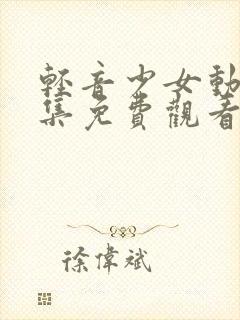 輕音少女動
集免費觀看
徐偉斌